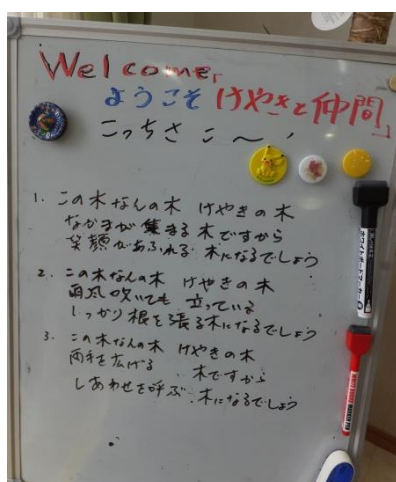 Welcome,
ようこそ けやきと仲間」
こっちさ こ〜、
1. この木なんの木 けやきの木
なかまが 集まる 木ですから
笑顔があふれる 木になるでしょう
2. この木なんの木 けやきの木
雨風吹いても 立っている
しっかり根を張る木になるでしょう
3. この木なんの木 けやきの木
両手を広げる 木ですから
しあわせを呼ぶ 木になるでしょう
ホワイトボードマーカー